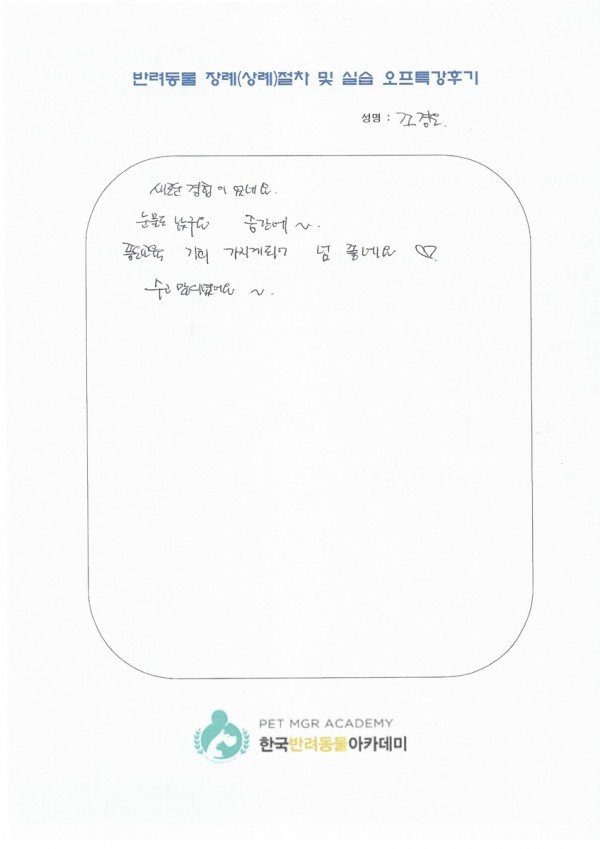 반려동물 장례(상례)절차 및 실습 오프특강후기
성명 : 조경오
새로운 경험이 됐네요.
눈물도 났구요 중간에 ~.
기회 가지게되어 넘 좋네요 ♡.
수고 많으셨어요 ~.
PET MGR ACADEMY
한국반려동물아카데미